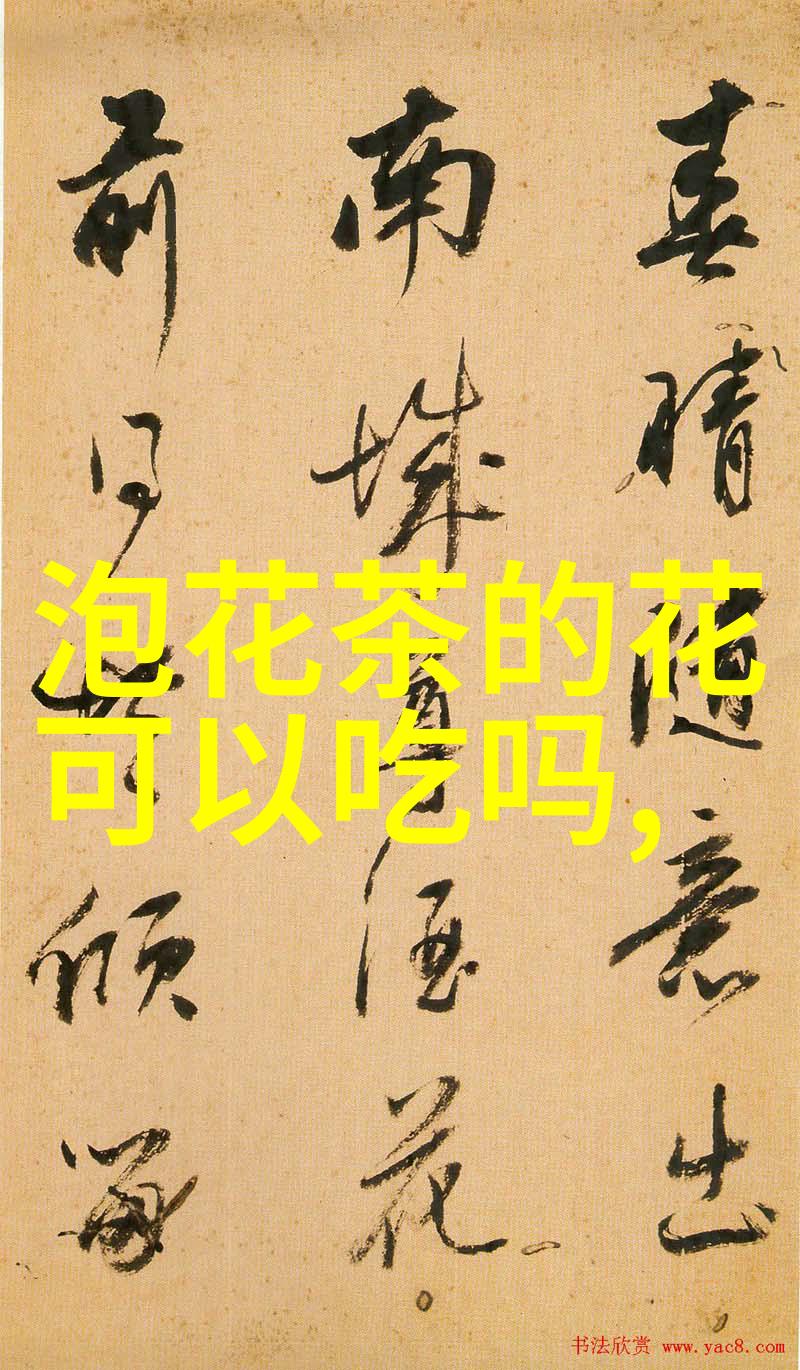 春晴隨意出
南城尊酒花
前
泡花茶的花
可以吃吗,
书法欣赏 www.yac8.com